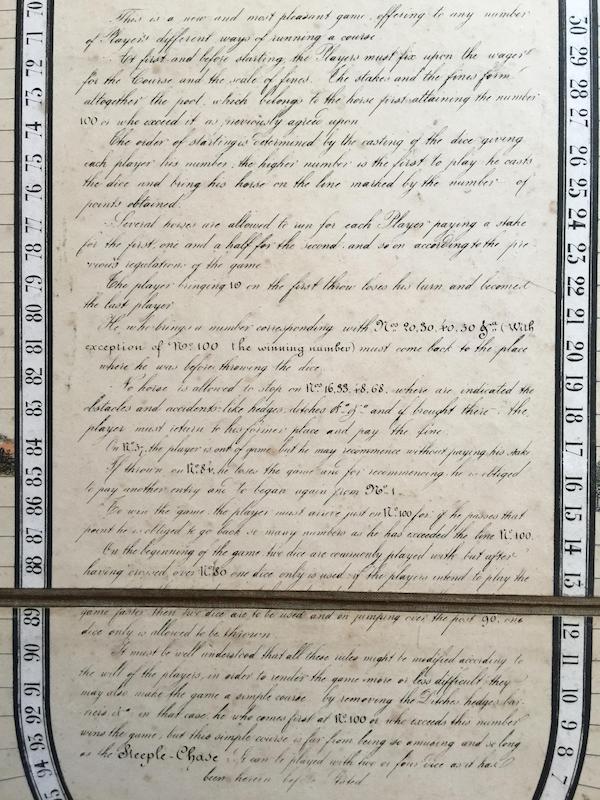 This is a new and most pleasant game, offering to any number
of Players different ways of running a course
At first and before starting, the Players must fix upon the wager
for the Course and the scale of fines. The stakes and the fines form
altogether the pool, which belongs to the horse first attaining the number
100 or who exceed it as previously agreed upon
The order of starting is determined by the casting of the dice giving
each player his number, the higher number is the first to play he casts
the dice and bring his horse on the line marked by the number of
points obtained.
Several horses are allowed to run for each Player paying a stake
for the first, one and a half for the second, and so on according to the pre
vious regulations of the game
The player bringing 10 on the first throw loses his turn and becomes
the last player
He, who brings a number corresponding with Nos 20, 30, 40, 50 &ca (With
exception of No 100 the winning number) must come back to the place
where he was before throwing the dice.
No horse is allowed to stop on Nos 16, 33, 48, 68, where are indicated the
obstacles and accidents like hedges, ditches &ca &ca and if bought there, the
player must return to his former place and pay the fine
On No 57, the player is out of game, but he may recommence without paying his stake
If thrown on No 84, he loses the game and for recommencing he is obliged
to pay another entry and to began again from No 1.
To win the game the player must arrive just on No 100 for if he passes that
point he is obliged to go back so many numbers as he has exceeded the line No 100.
On the beginning of the game two dice are commonly played with but after
having crossed over No 80 one dice only is used if the players intend to play the
game faster then two dice are to be used and on jumping over the post 90, one
dice only is allowed to be thrown
It must be well understood that all these rules might be modified according to
the will of the players, in order to render the game more or less difficult they
may also make the game a simple course by removing the Ditches hedges, bar-
riers, &ca in that case, he who comes first at No 100 or who exceeds this number
wins the game, but this simple course is far from being so amusing and so long
as the Steeple-Chase It can be played with two or four dice as it has
been herein
70
71
72
73
74
75
76
77
78
79
80
81
82
83
84
85
86
87
88
89
90
91
92
93
94
95
30
29
28
27
26
25
24
23
22
21
20
19
18
17
16
15
14
13
12
11
10
9
8
7